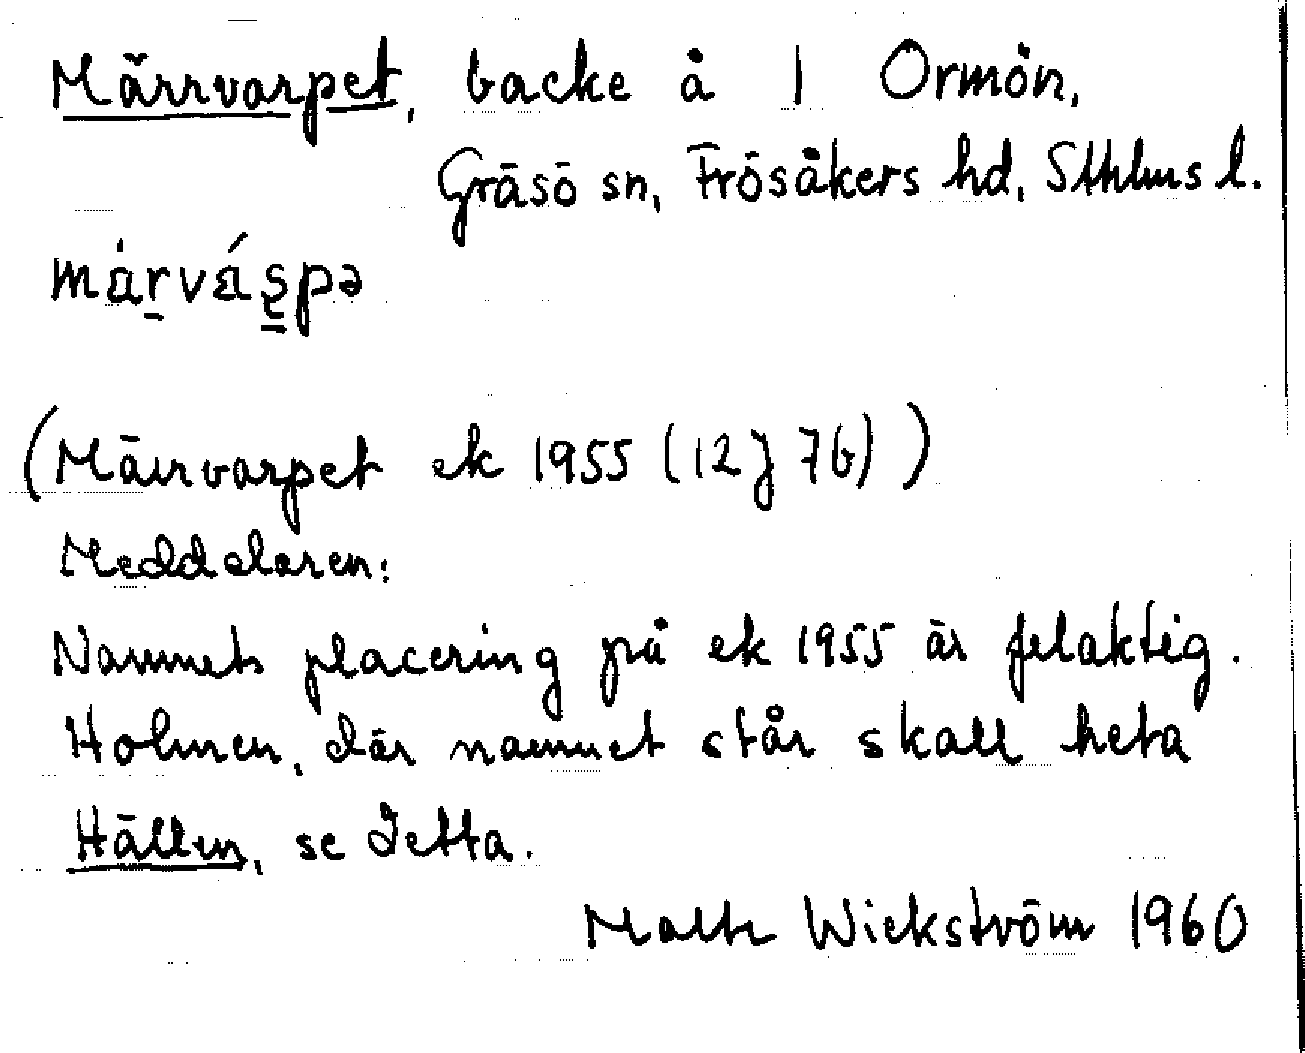 Märrvarpet, backe å 1 Ormön,
Gräsö sn, Frösåkers hd, Sthlms l.
ma̍r̠váş̳pə
(Märrvarpet ek 1955 (12J 7b))
Meddelaren:
Namnets placering på ek 1955 är felaktig.
Holmen, där namnet står skall heta
Hällen, se detta.
Malte Wickström 1960